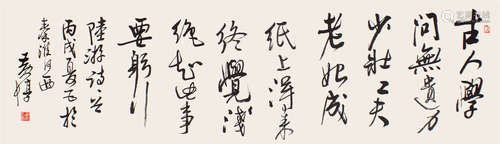 古人學
問無遺力
少壯工夫
老始成
紙上得来
終覺淺
絶知此事
要躬行
陸游詩
丙戌夏書於
秦淮河西
黃惇